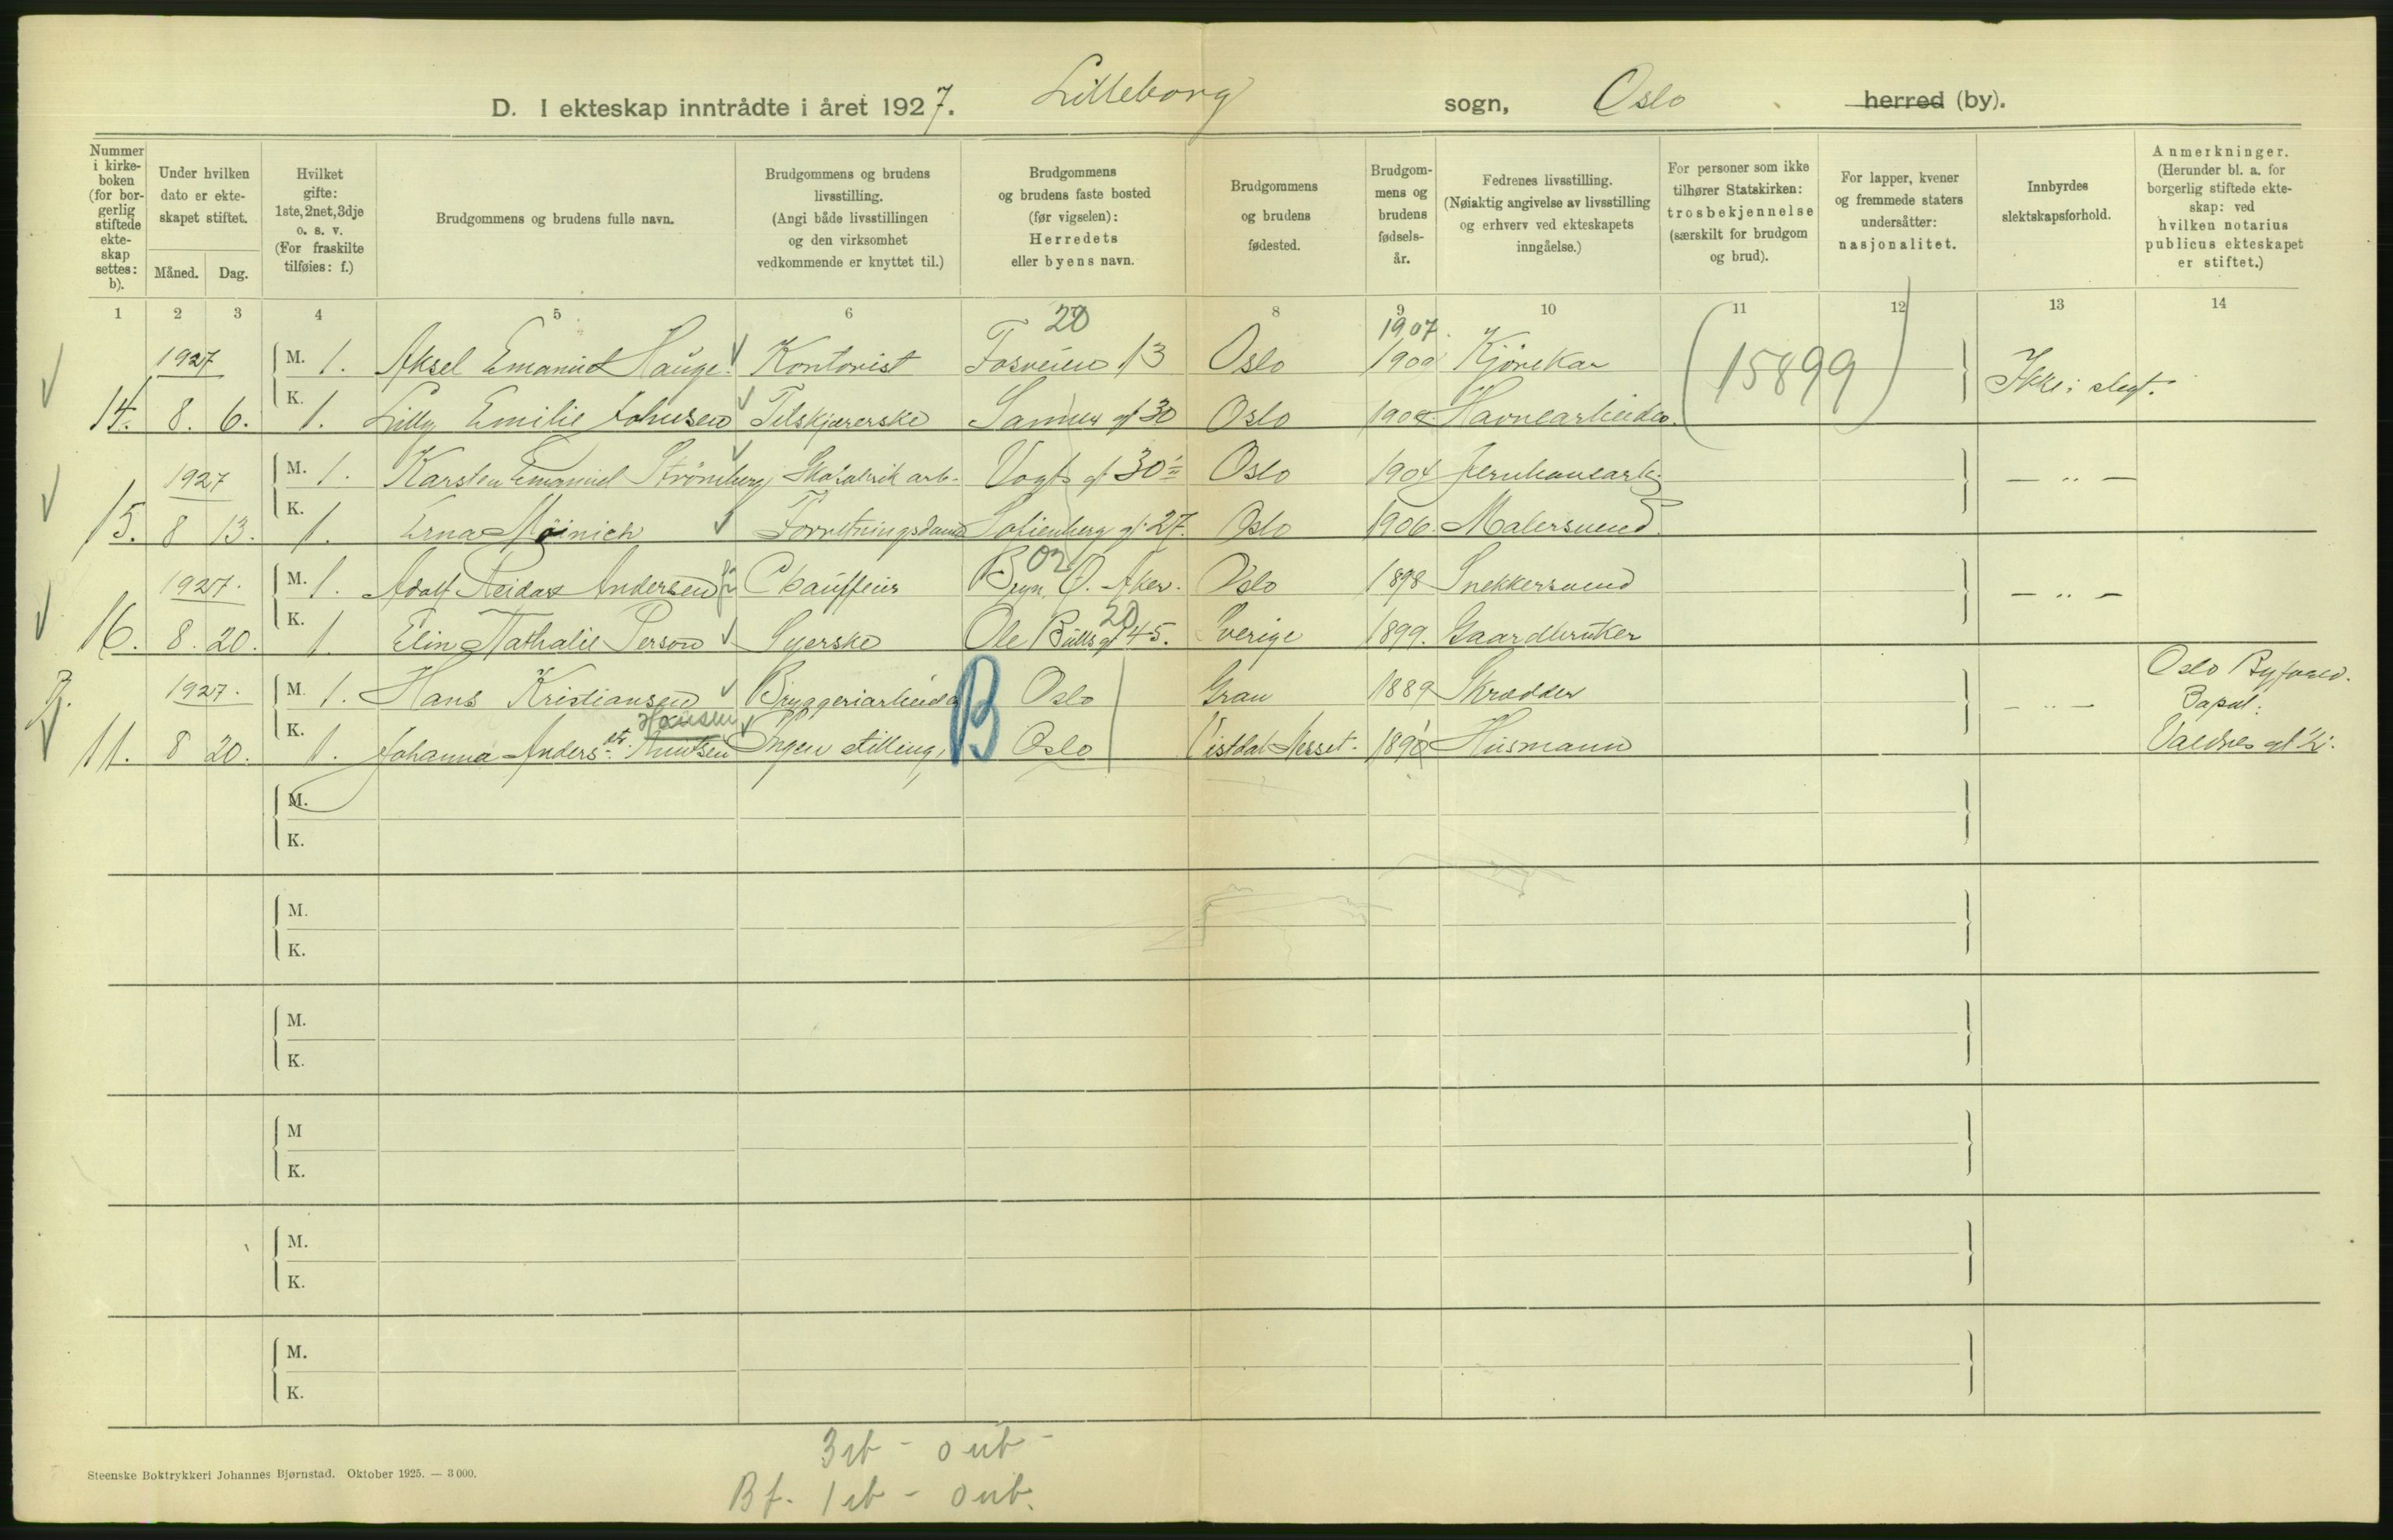 D. I ekteskap inntrådte i året 1927. Lilleborg sogn, Oslo herred (by).
Nummer i kirke-boken (for bor-gerlig stiftede ekte-skap settes: b).
Under hvilken dato er ekte-skapet stiftet.
Måned. Dag.
Hvilket gifte: 1ste, 2net, 3dje o. s. v. (For fraskilte tilføies: f.)
Brudgommens og brudens fulle navn.
Brudgommens og brudens livsstilling. (Angi både livsstillingen og den virksomhet vedkommende er knyttet til.)
Brudgommens og brudens faste bosted (før vigselen): Herredets eller byens navn.
Brudgommens og brudens fødested.
Brudgom-mens og brudens fødsels-år.
Fedrenes livsstilling. (Nøiaktig angivelse av livsstilling og erhverv ved ekteskapets inngåelse.)
For personer som ikke tilhører Statskirken: trosbekjennelse (særskilt for brudgom og brud).
For lapper, kvener og fremmede staters undersåtter: nasjonalitet.
Innbyrdes slektskapsforhold.
Anmerkninger. (Herunder bl. a. for borgerlig stiftede ekte-skap: ved hvilken notarius publicus ekteskapet er stiftet.)
1 2 3 4 5 6 7 8 9 10 11 12 13 14
20 1907.
1927 M. 1. Aksel Emanuel Hauge Kontorist Fosveien 13 Oslo 1900 Kjørekar (15899) Ikke i slegt.
14. 8. 6. K. 1. Lilly Emilie Johnsen Tilskjærerske Sanner gt 30 Oslo 1908 Havnearbeider.
1927 M. 1. Karsten Emanuel Strömberg Skofabrik arb. Vogts gt 30 Oslo 1904 — " —
15. 8 13. K. 1. Erna Møinich Forretningsdame Sofienberg gt. 27. Oslo 1906. Malersvend.
1927. M. 1. Adolf Reidar Andersen Chauffeur Bryn, Ø. Aker. Oslo 1898 Snekkersvend — " —
20
16. 8. 20. K. 1. Elin Nathalie Person Syerske Ole Bulls gt 45. Sverige 1899. Gaardbruker
1927. M. 1. Hans Kristiansen Bryggeriarbeider B Oslo Gran 1889 Skrædder — " — Oslo Byfoged.
Hansen
11. 8 20. K. 1. Johanna Anders- Knutsen Ingen stilling, Oslo Husmann
M.
K.
M.
K.
M.
K.
M
K.
M.
K.
M.
K.
Steenske Boktrykkeri Johannes Bjørnstad. Oktober 1925. — 3 000.
3 eb - 0 ub -
Bf. 1 eb - 0 ub.